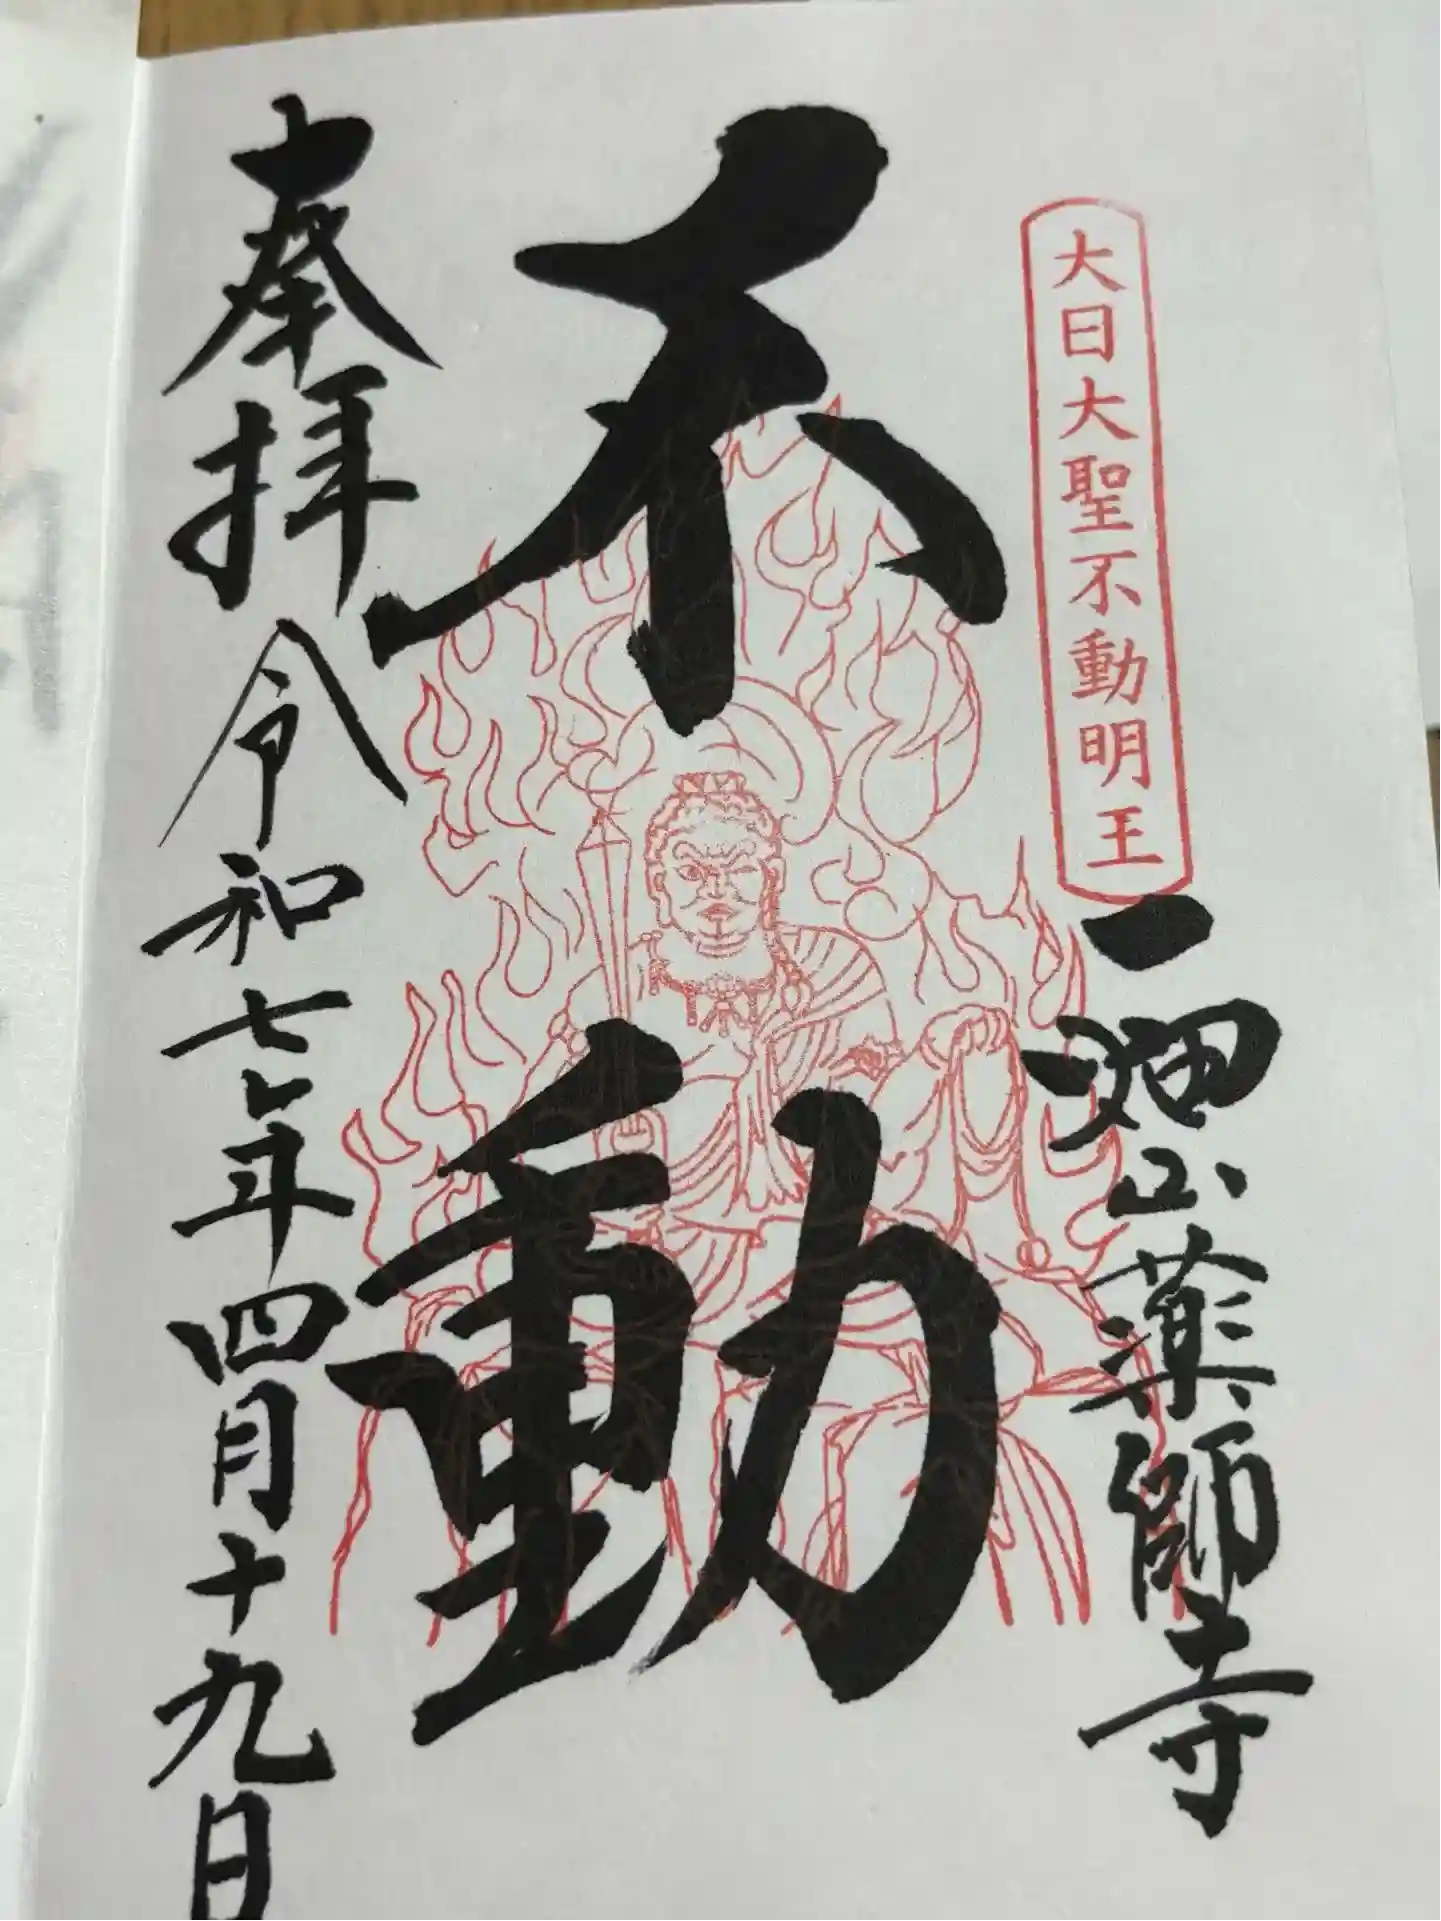 大日大聖不動明王
一畑山薬師寺
不動
奉拝 令和七年四月十九日